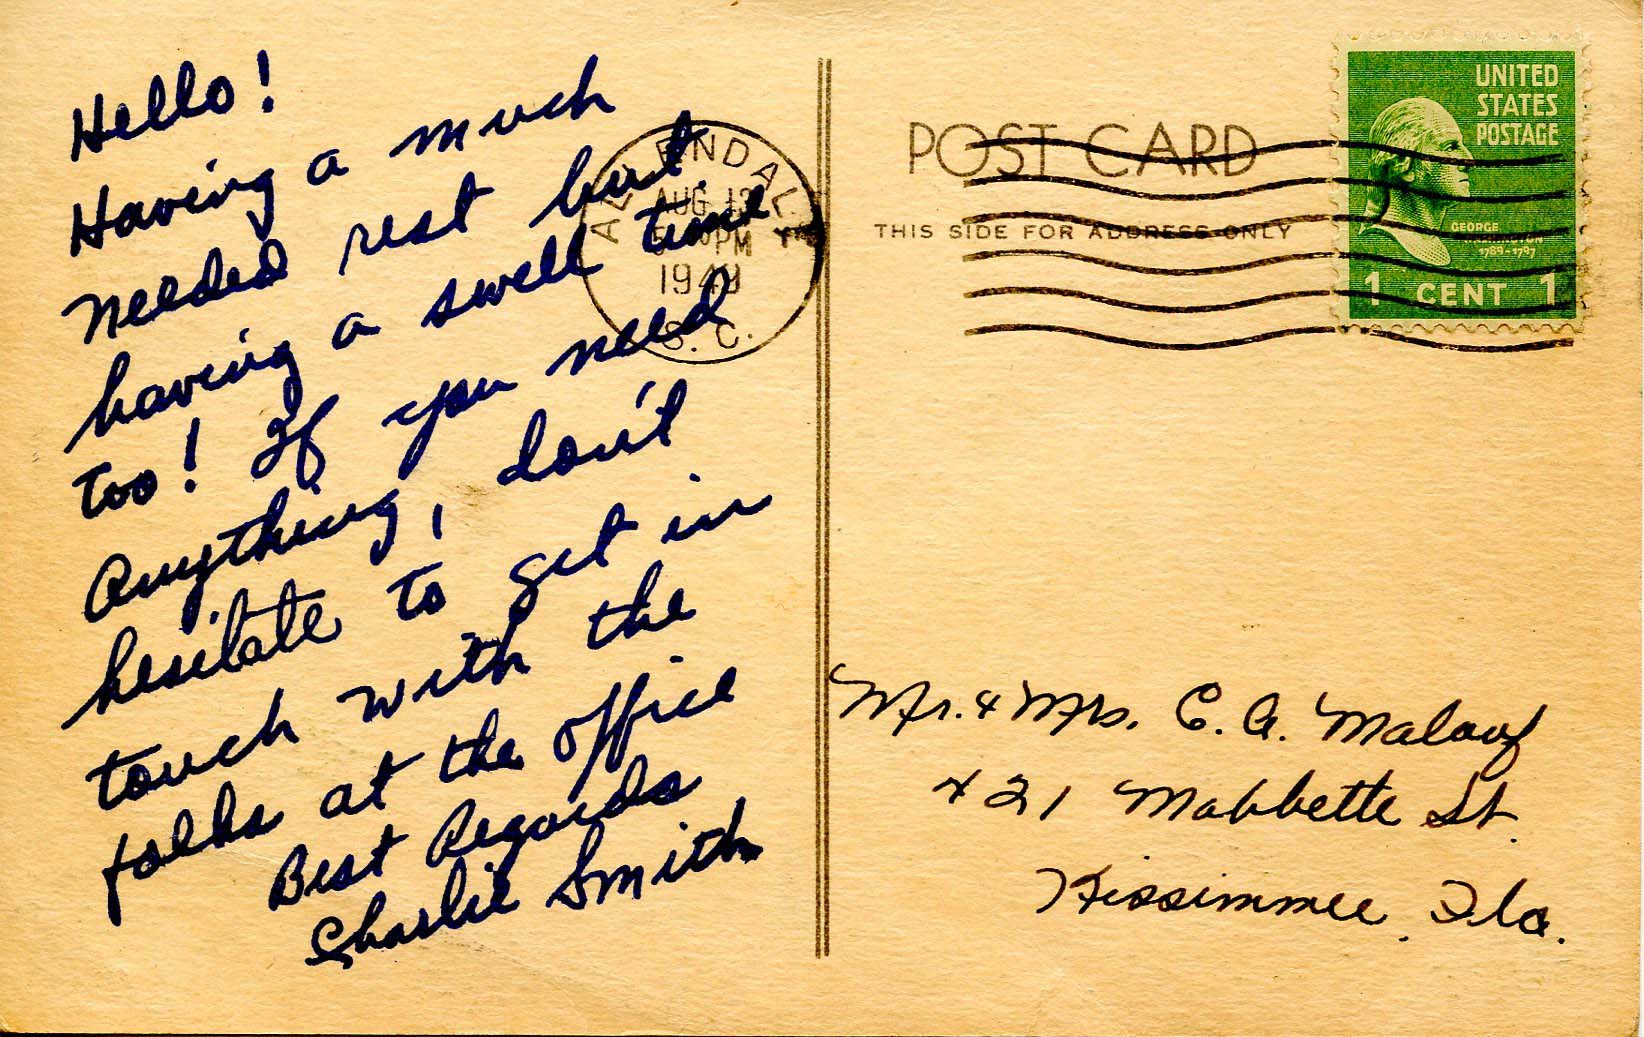 Hello!
Having a much
needed rest but
having a swell time
too! If you need
Anything, don't
hesitate to get in
touch with the
folks at the office
Best Regards
Charlie Smith
ALLENDALE
AUG 12
PM
1949
S. C.
POST CARD
THIS SIDE FOR ADDRESS ONLY
UNITED
STATES
POSTAGE
GEORGE
WASHINGTON
1789-1797
1 CENT 1
Mr. & Mrs. C. A. Malouf
421 Mabbette St.
Kissimmee, Fla.